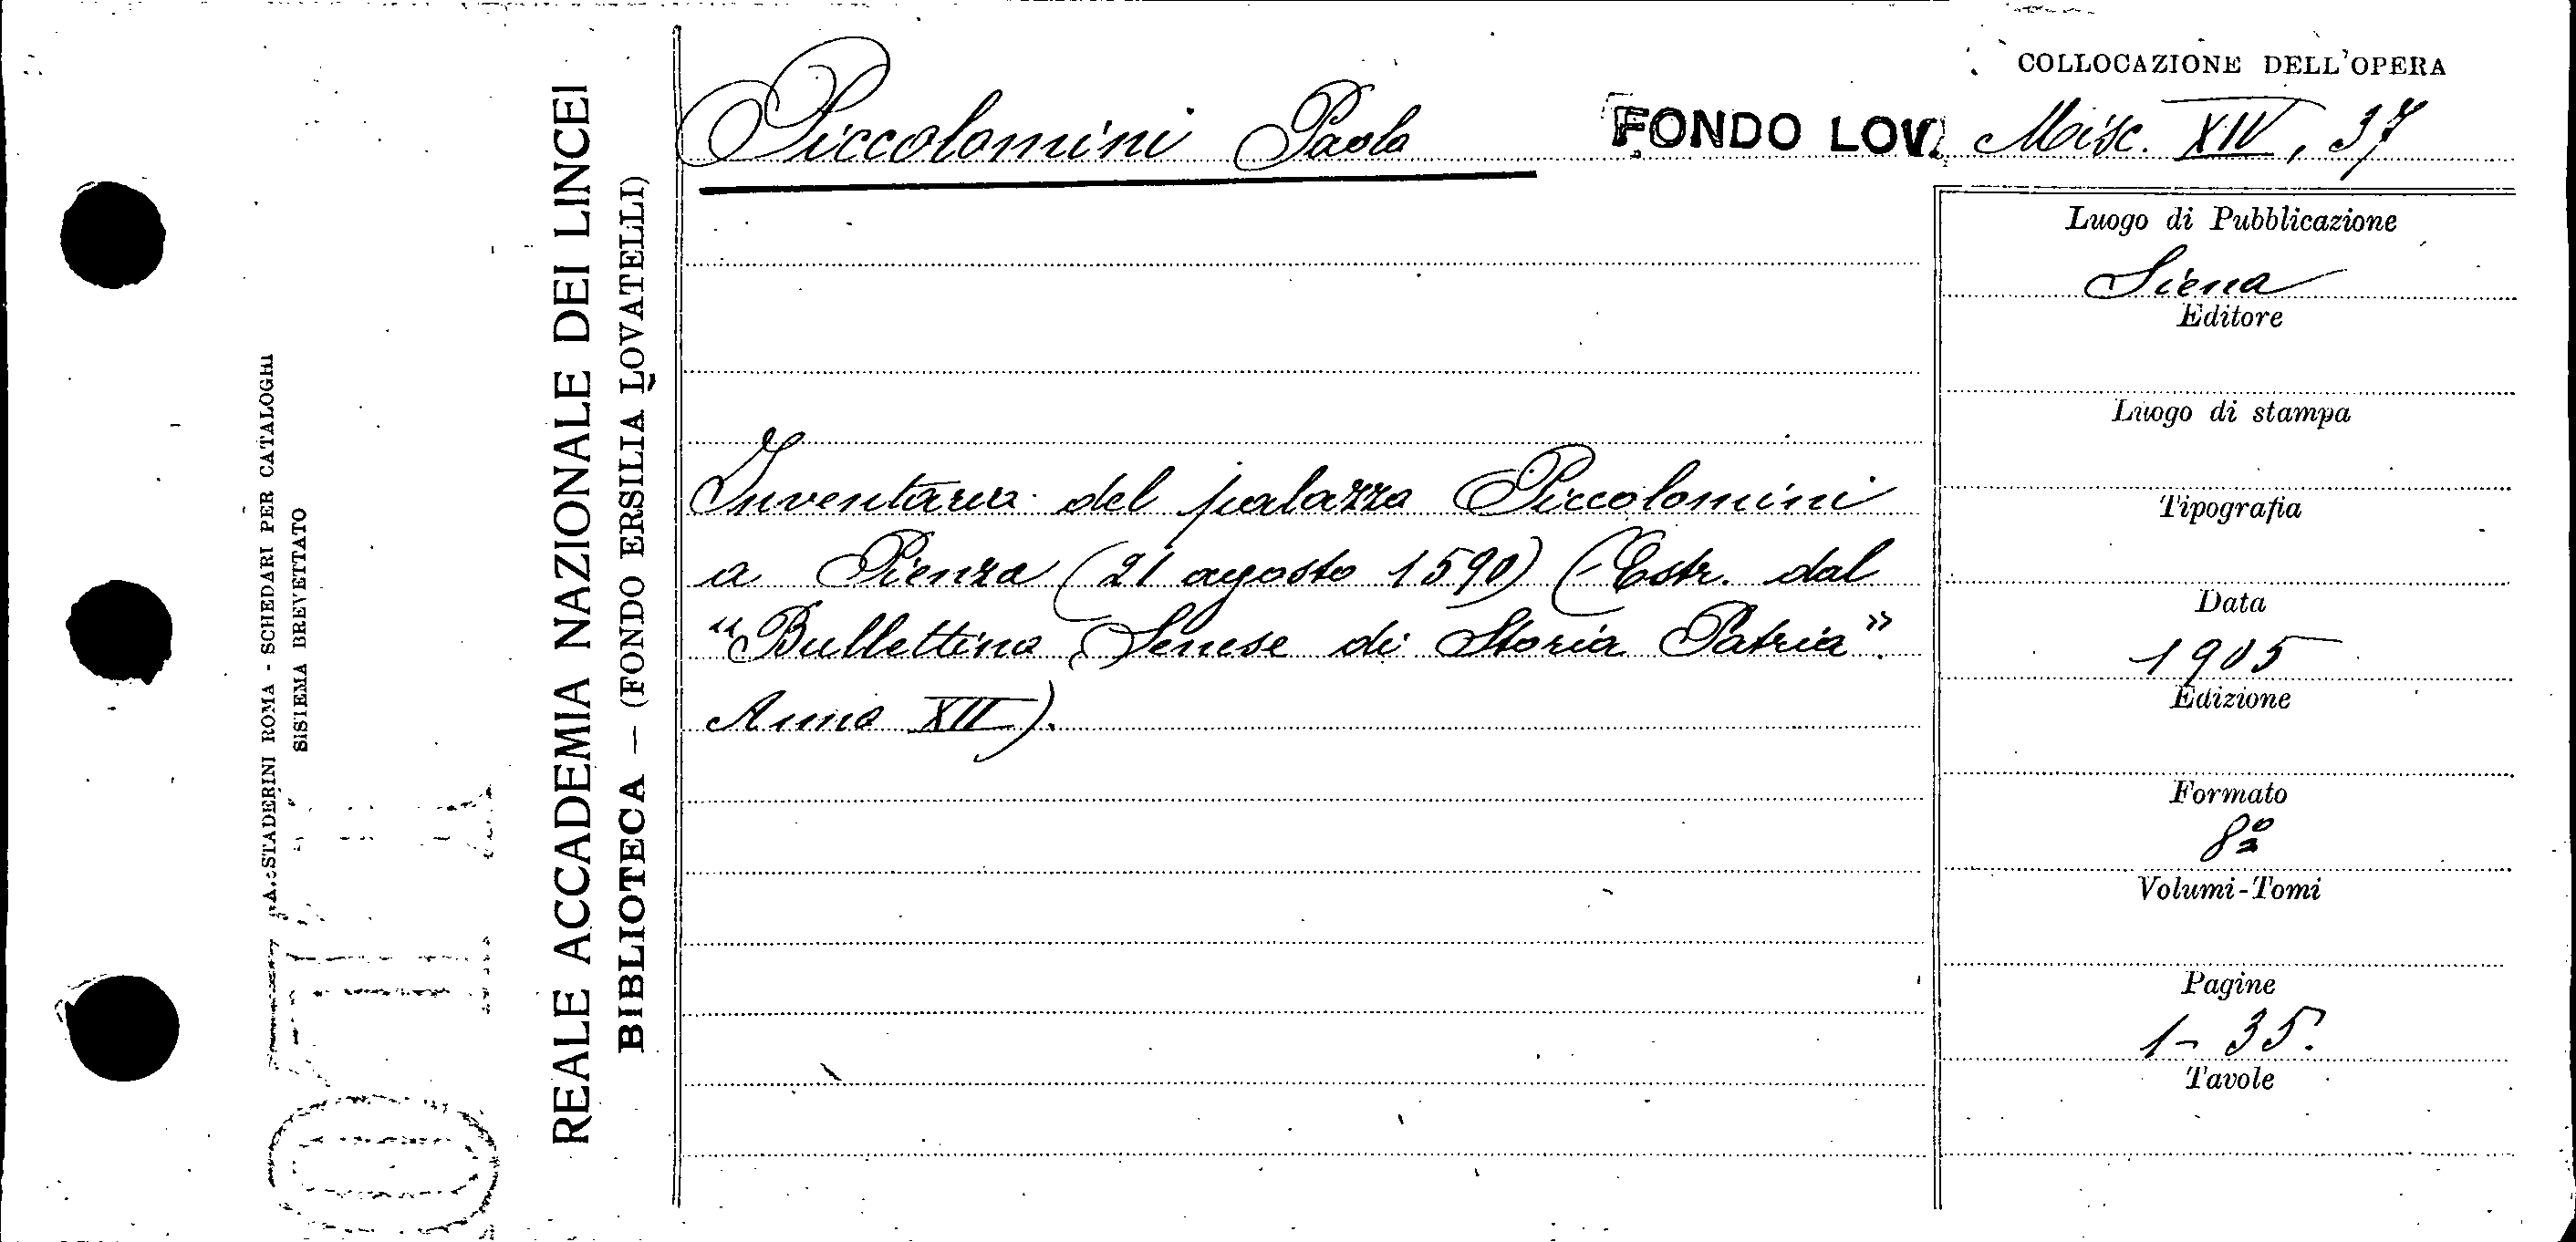 COLLOCAZIONE DELL'OPERA
Piccolomini Paolo
FONDO LOV. Misc. XIV, 37
Luogo di Pubblicazione
Siena
Editore
Luogo di stampa
Tipografia
Data
1905
Edizione
Formato
8º
Volumi-Tomi
Pagine
1-35.
Tavole
Inventario del palazzo Piccolomini
a Pienza (21 agosto 1590) (Estr. dal
"Bullettino Senese di Storia Patria".
Anno XII).
REALE ACCADEMIA NAZIONALE DEI LINCEI
BIBLIOTECA — (FONDO ERSILIA LOVATELLI)
A. STADERINI ROMA - SCHEDARI PER CATALOGHI
SISTEMA BREVETTATO